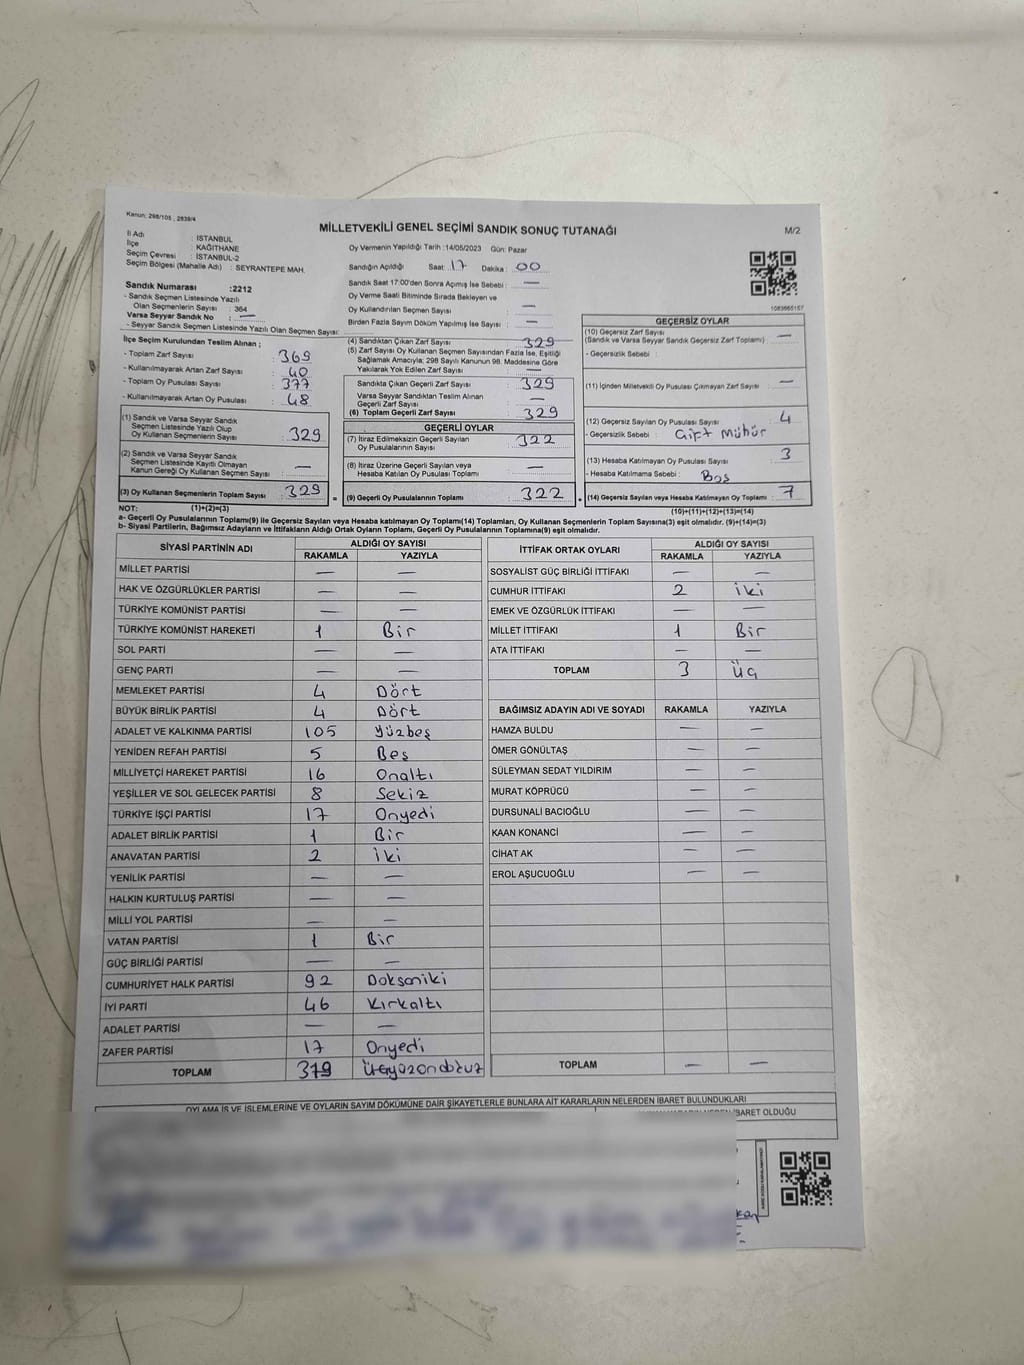 Kanun: 298/105 , 2839/4
MİLLETVEKİLİ GENEL SEÇİMİ SANDIK SONUÇ TUTANAĞI
M/2
İl Adı : İSTANBUL
İlçe : KAĞITHANE
Seçim Çevresi : İSTANBUL-2
Seçim Bölgesi (Mahalle Adı) : SEYRANTEPE MAH.
Oy Vermenin Yapıldığı Tarih :14/05/2023 Gün: Pazar
Sandığın Açıldığı Saat: 17 Dakika : 00
Sandık Saat 17:00'den Sonra Açımış İse Sebebi : —
Oy Verme Saati Bitiminde Sırada Bekleyen ve
Oy Kullandırılan Seçmen Sayısı : —
Birden Fazla Sayım Döküm Yapılmış İse Sayısı : —
Sandık Numarası :2212
- Sandık Seçmen Listesinde Yazılı
Olan Seçmenlerin Sayısı : 364
Varsa Seyyar Sandık No : —
- Seyyar Sandık Seçmen Listesinde Yazılı Olan Seçmen Sayısı:
İlçe Seçim Kurulundan Teslim Alınan ;
- Toplam Zarf Sayısı : 369
- Kullanılmayarak Artan Zarf Sayısı : 40
- Toplam Oy Pusulası Sayısı : 377
- Kullanılmayarak Artan Oy Pusulası : 48
(1) Sandık ve Varsa Seyyar Sandık
Seçmen Listesinde Yazılı Olup
Oy Kullanan Seçmenlerin Sayısı : 329
(2) Sandık ve Varsa Seyyar Sandık
Seçmen Listesinde Kayıtlı Olmayan
Kanun Gereği Oy Kullanan Seçmen Sayısı : —
(3) Oy Kullanan Seçmenlerin Toplam Sayısı : 329
(4) Sandıktan Çıkan Zarf Sayısı : 329
(5) Zarf Sayısı Oy Kullanan Seçmen Sayısından Fazla İse, Eşitliği
Sağlamak Amacıyla; 298 Sayılı Kanunun 98. Maddesine Göre
Yakılarak Yok Edilen Zarf Sayısı : —
Sandıkta Çıkan Geçerli Zarf Sayısı : 329
Varsa Seyyar Sandıktan Teslim Alınan
Geçerli Zarf Sayısı : —
(6) Toplam Geçerli Zarf Sayısı : 329
GEÇERLİ OYLAR
(7) İtiraz Edilmeksizin Geçerli Sayılan
Oy Pusulalarının Sayısı : 322
(8) İtiraz Üzerine Geçerli Sayılan veya
Hesaba Katılan Oy Pusulası Toplamı : —
(9) Geçerli Oy Pusulalarının Toplamı : 322
1083665157
GEÇERSİZ OYLAR
(10) Geçersiz Zarf Sayısı
(Sandık ve Varsa Seyyar Sandık Geçersiz Zarf Toplamı) : —
- Geçersizlik Sebebi :
(11) İçinden Milletvekili Oy Pusulası Çıkmayan Zarf Sayısı : —
(12) Geçersiz Sayılan Oy Pusulası Sayısı : 4
- Geçersizlik Sebebi : Çift Mühür
(13) Hesaba Katılmayan Oy Pusulası Sayısı : 3
- Hesaba Katılmama Sebebi : Boş
(14) Geçersiz Sayılan veya Hesaba Katılmayan Oy Toplamı : 7
NOT: (1)+(2)=(3) (10)+(11)+(12)+(13)=(14)
a- Geçerli Oy Pusulalarının Toplamı(9) ile Geçersiz Sayılan veya Hesaba katılmayan Oy Toplamı(14) Toplamları, Oy Kullanan Seçmenlerin Toplam Sayısına(3) eşit olmalıdır. (9)+(14)=(3)
b- Siyasi Partilerin, Bağımsız Adayların ve İttifakların Aldığı Ortak Oyların Toplamı, Geçerli Oy Pusulalarının Toplamına(9) eşit olmalıdır.
SİYASİ PARTİNİN ADI ALDIĞI OY SAYISI
RAKAMLA YAZIYLA
MİLLET PARTİSİ — —
HAK VE ÖZGÜRLÜKLER PARTİSİ — —
TÜRKİYE KOMÜNİST PARTİSİ — —
TÜRKİYE KOMÜNİST HAREKETİ 1 Bir
SOL PARTİ — —
GENÇ PARTİ — —
MEMLEKET PARTİSİ 4 Dört
BÜYÜK BİRLİK PARTİSİ 4 Dört
ADALET VE KALKINMA PARTİSİ 105 Yüzbeş
YENİDEN REFAH PARTİSİ 5 Beş
MİLLİYETÇİ HAREKET PARTİSİ 16 Onaltı
YEŞİLLER VE SOL GELECEK PARTİSİ 8 Sekiz
TÜRKİYE İŞÇİ PARTİSİ 17 Onyedi
ADALET BİRLİK PARTİSİ 1 Bir
ANAVATAN PARTİSİ 2 İki
YENİLİK PARTİSİ — —
HALKIN KURTULUŞ PARTİSİ — —
MİLLİ YOL PARTİSİ — —
VATAN PARTİSİ 1 Bir
GÜÇ BİRLİĞİ PARTİSİ — —
CUMHURİYET HALK PARTİSİ 92 Doksaniki
İYİ PARTİ 46 Kırkaltı
ADALET PARTİSİ — —
ZAFER PARTİSİ 17 Onyedi
TOPLAM 319
İTTİFAK ORTAK OYLARI ALDIĞI OY SAYISI
RAKAMLA YAZIYLA
SOSYALİST GÜÇ BİRLİĞİ İTTİFAKI — —
CUMHUR İTTİFAKI 2 İki
EMEK VE ÖZGÜRLÜK İTTİFAKI — —
MİLLET İTTİFAKI 1 Bir
ATA İTTİFAKI — —
TOPLAM 3 Üç
BAĞIMSIZ ADAYIN ADI VE SOYADI RAKAMLA YAZIYLA
HAMZA BULDU — —
ÖMER GÖNÜLTAŞ — —
SÜLEYMAN SEDAT YILDIRIM — —
MURAT KÖPRÜCÜ — —
DURSUNALİ BACIOĞLU — —
KAAN KONANCİ — —
CİHAT AK — —
EROL AŞUCUOĞLU — —
TOPLAM — —
OYLAMA İŞ VE İŞLEMLERİNE VE OYLARIN SAYIM DÖKÜMÜNE DAİR ŞİKAYETLERLE BUNLARA AİT KARARLARIN NELERDEN İBARET BULUNDUKLARI
İBARET OLDUĞU